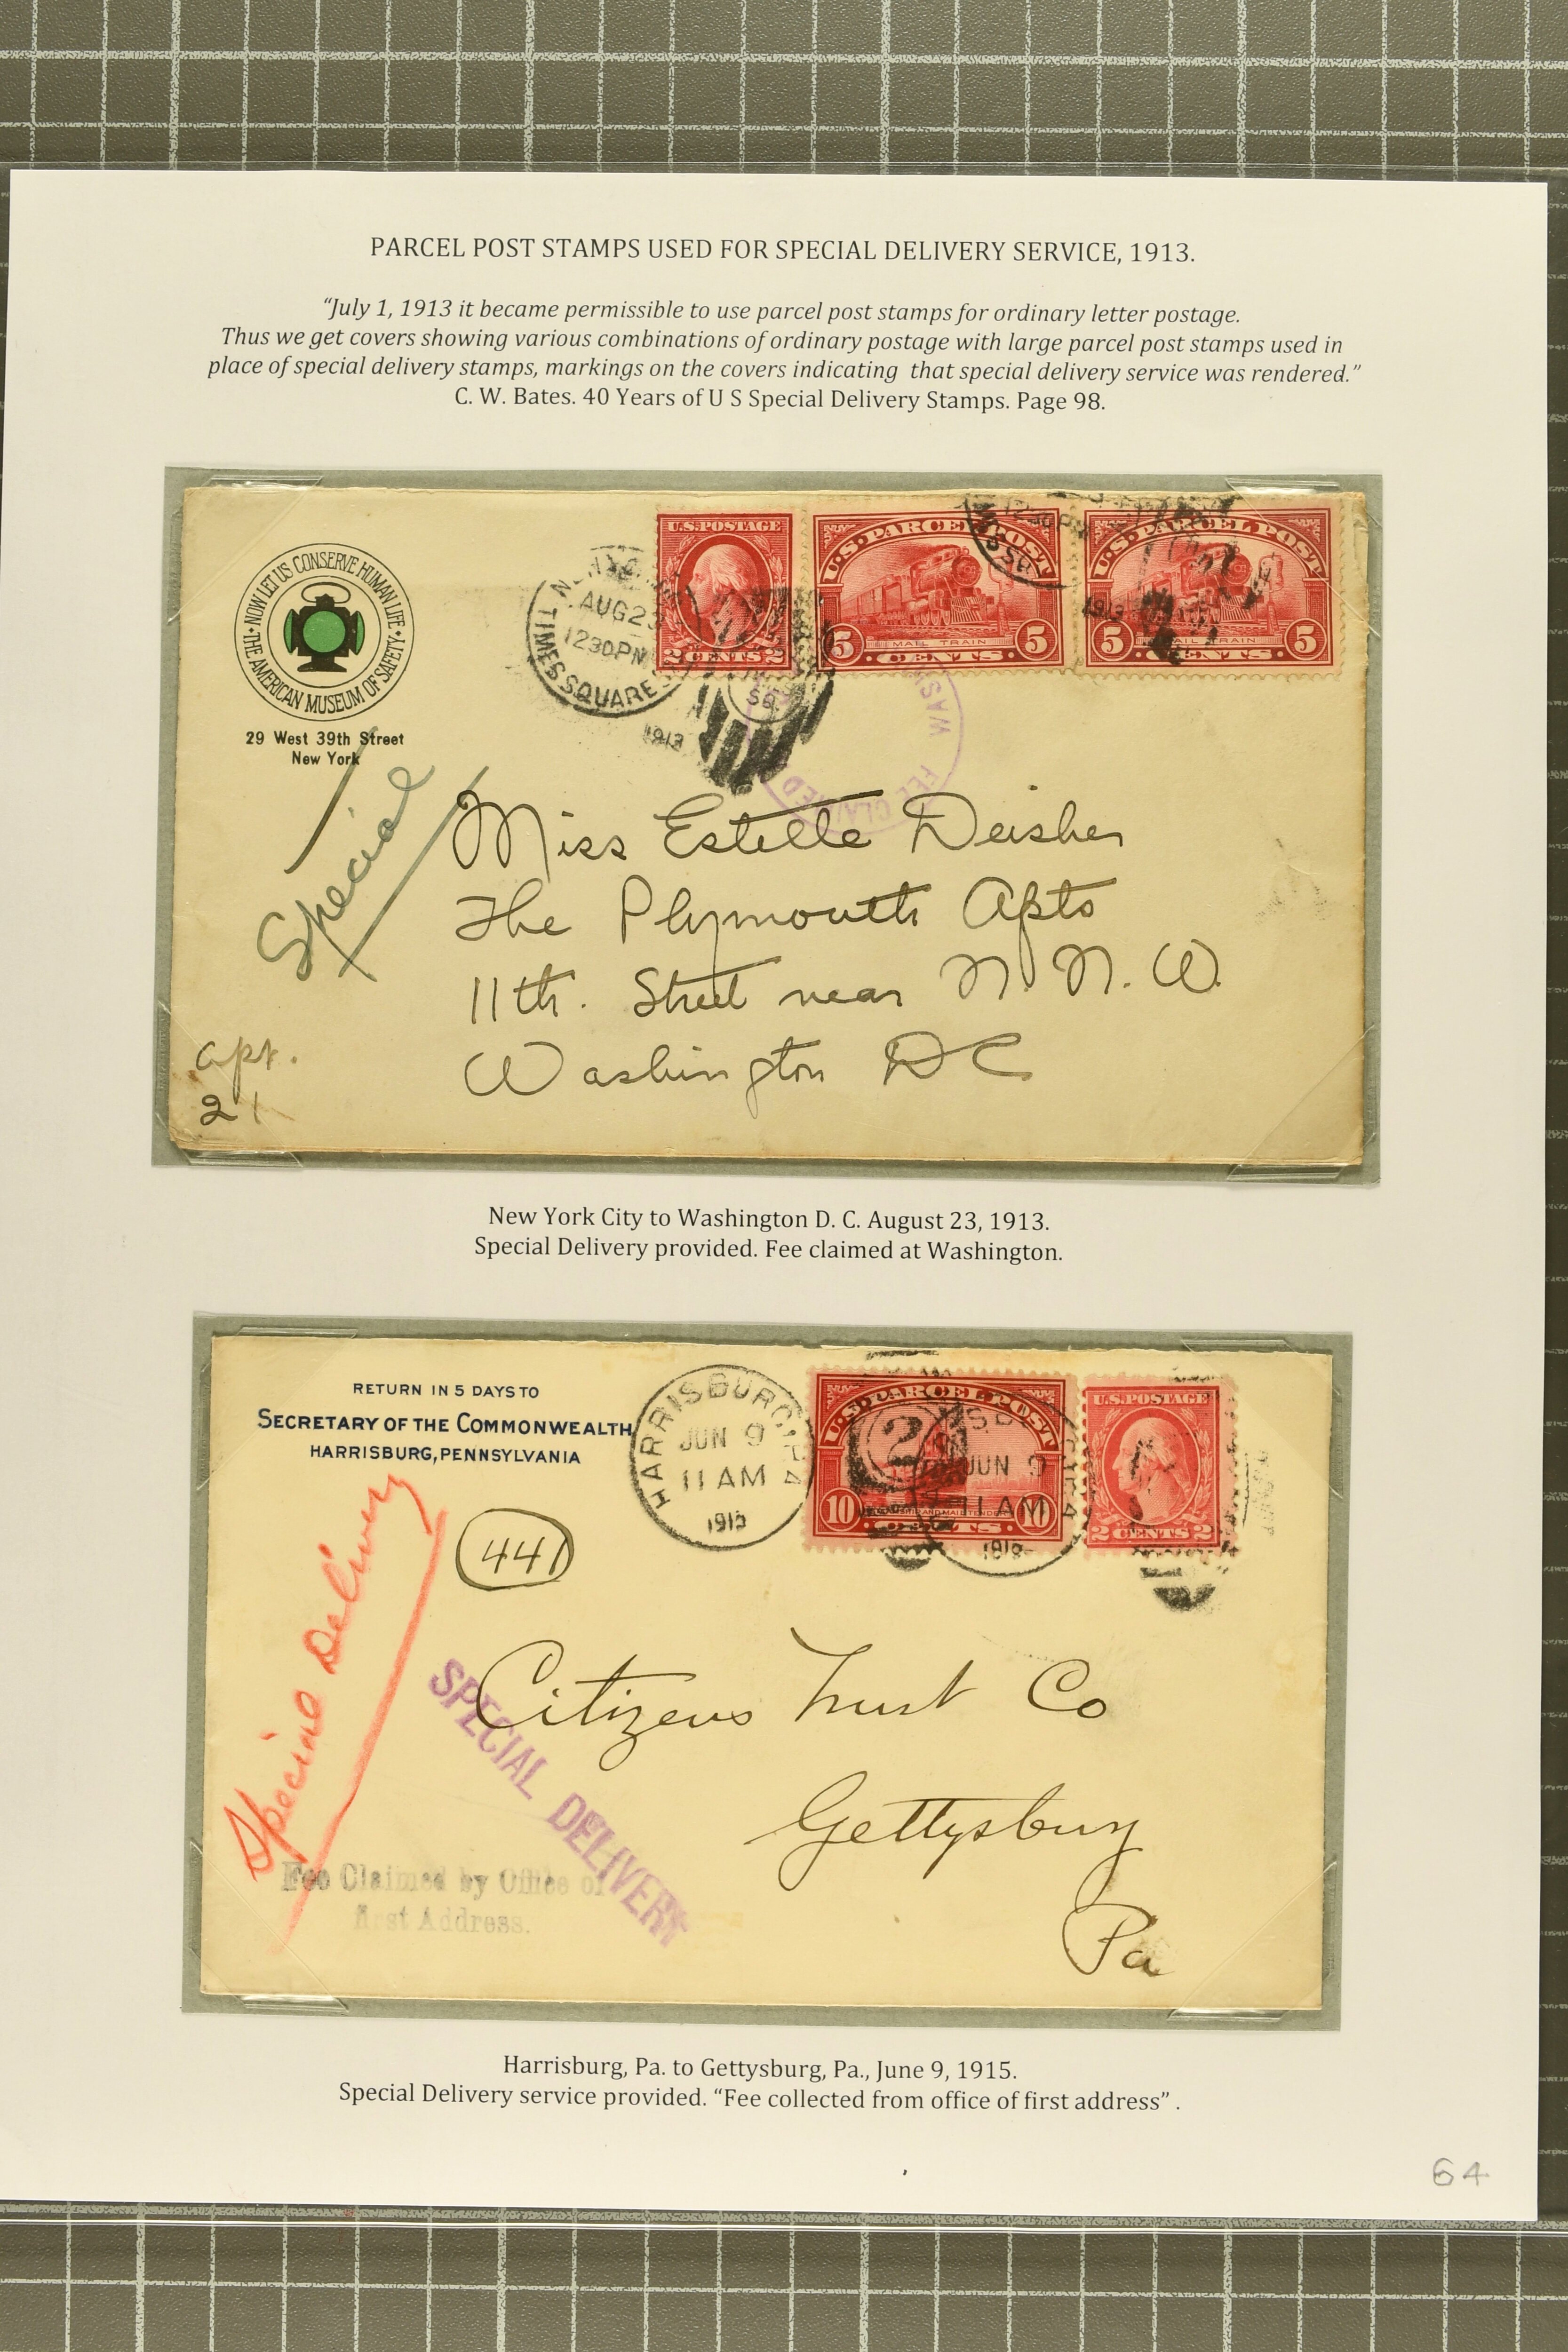 PARCEL POST STAMPS USED FOR SPECIAL DELIVERY SERVICE, 1913.
“July 1, 1913 it became permissible to use parcel post stamps for ordinary letter postage.
Thus we get covers showing various combinations of ordinary postage with large parcel post stamps used in
place of special delivery stamps, markings on the covers indicating that special delivery service was rendered.”
C. W. Bates. 40 Years of U S Special Delivery Stamps. Page 98.
NOW LET US CONSERVE HUMAN LIFE
THE AMERICAN MUSEUM OF SAFETY
29 West 39th Street
New York
Special
AUG 23
12 30 PM
TIMES SQUARE
1913
U.S. POSTAGE
2 CENTS 2
U.S. PARCEL POST
5 MAIL TRAIN 5
CENTS
1230 PM
1913
U.S. PARCEL POST
5 MAIL TRAIN 5
CENTS
FEE CLAIMED WASH
Miss Estelle Deisher
The Plymouth Apts
11th. Street near N. N. W.
Washington DC
apt.
21
New York City to Washington D. C. August 23, 1913.
Special Delivery provided. Fee claimed at Washington.
RETURN IN 5 DAYS TO
SECRETARY OF THE COMMONWEALTH
HARRISBURG, PENNSYLVANIA
HARRISBURG, PA
JUN 9
11 AM
1915
U.S. PARCEL POST
10 10
CENTS
2
JUN 9
11 AM
U.S. POSTAGE
2 CENTS 2
441
Special Delivery
SPECIAL DELIVERY
Citizens Trust Co
Gettysburg
Pa
Fee Claimed by Office of
first Address.
Harrisburg, Pa. to Gettysburg, Pa., June 9, 1915.
Special Delivery service provided. “Fee collected from office of first address” .
64